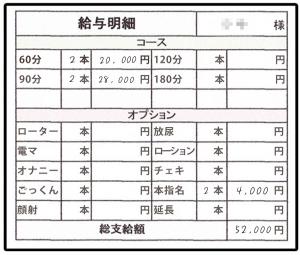 給与明細 様
コース
60分 2本 20,000円 120分 本 円
90分 2本 28,000円 180分 本 円
オプション
ローター 本 円 放尿 本 円
電マ 本 円 ローション 本 円
オナニー 本 円 チェキ 本 円
ごっくん 本 円 本指名 2本 4,000円
顔射 本 円 延長 本 円
総支給額 52,000円